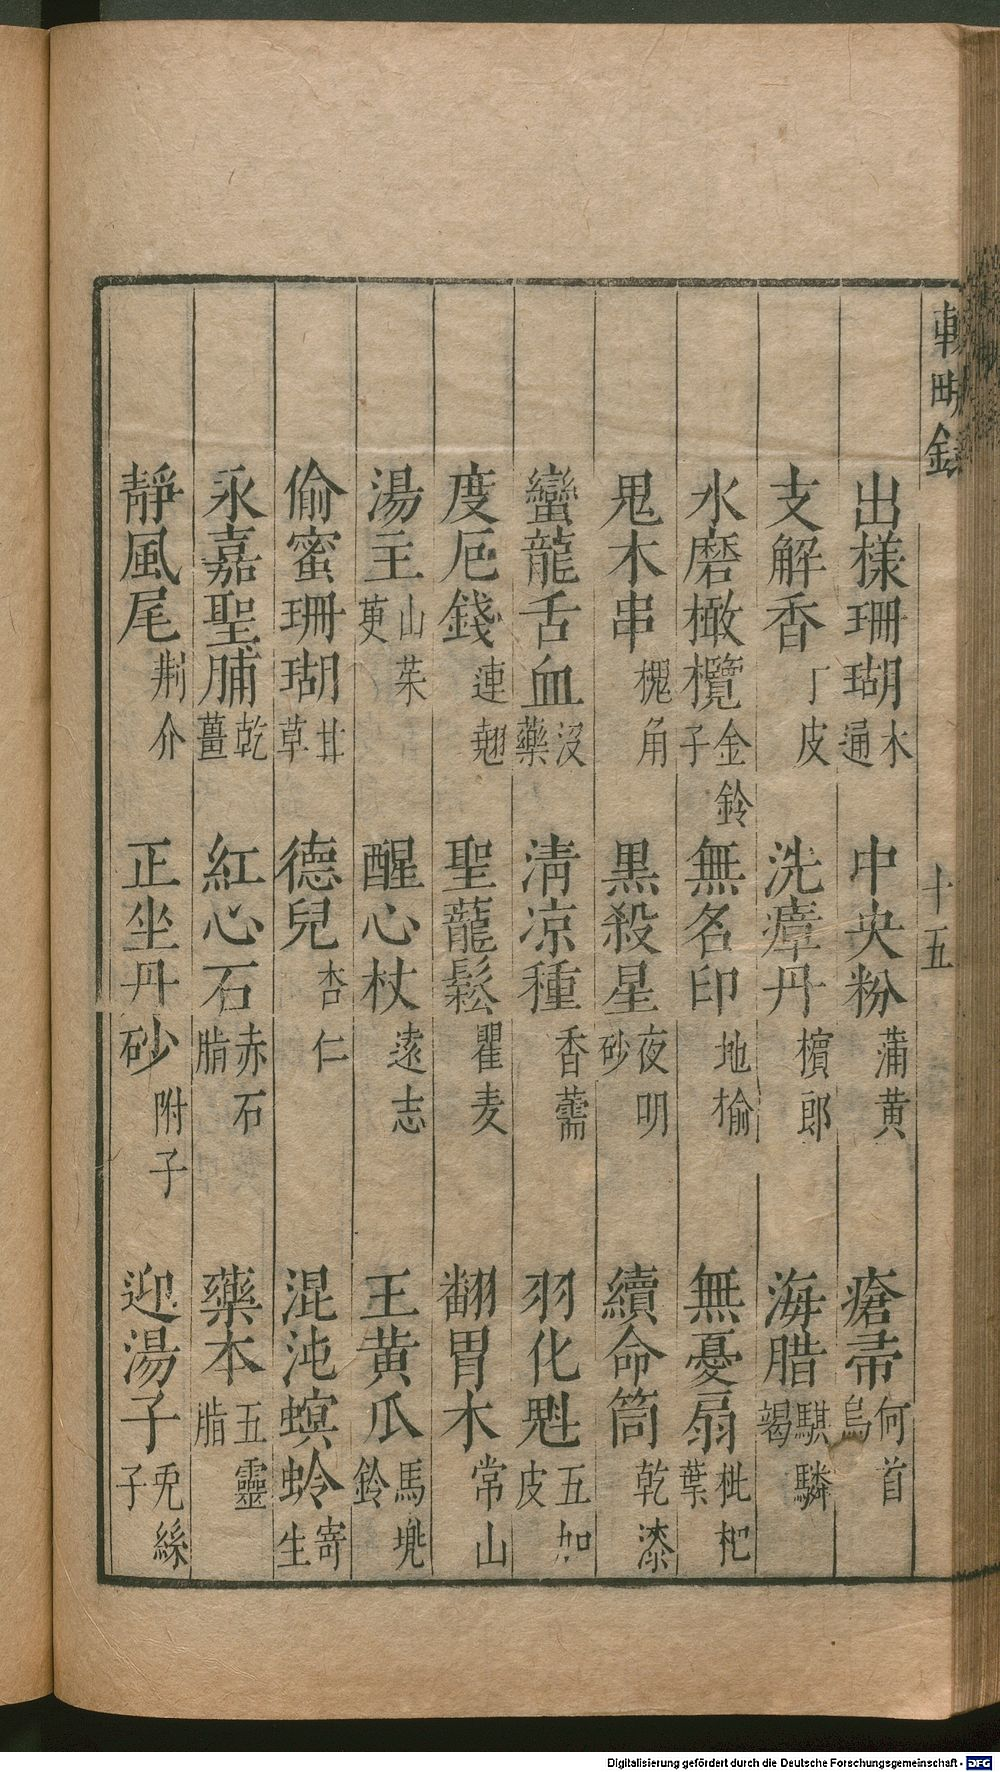 出樣珊瑚木通　中央粉蒲黄　瘡帚何首烏
支解香丁皮　洗瘴丹檳郎　海腊騏驎竭
水磨橄欖金鈴子　無名印地榆　無憂扇枇杷葉
鬼木串槐角　黒殺星夜明砂　續命筒乾漆
蠻龍舌血没藥　清凉種香薷　羽化魁五加皮
度厄錢連翹　聖蘢鬆瞿麦　翻胃木常山
湯主山茱萸　醒心杖遠志　王黄瓜馬兠鈴
偷蜜珊瑚甘草　德兒杏仁　混沌螟蛉寄生
永嘉聖脯乾薑　紅心石赤石脂　藥本五靈脂
靜風尾荆介　正坐丹砂附子　迎湯子兎絲子
十五
Digitalisierung gefördert durch die Deutsche Forschungsgemeinschaft - DFG